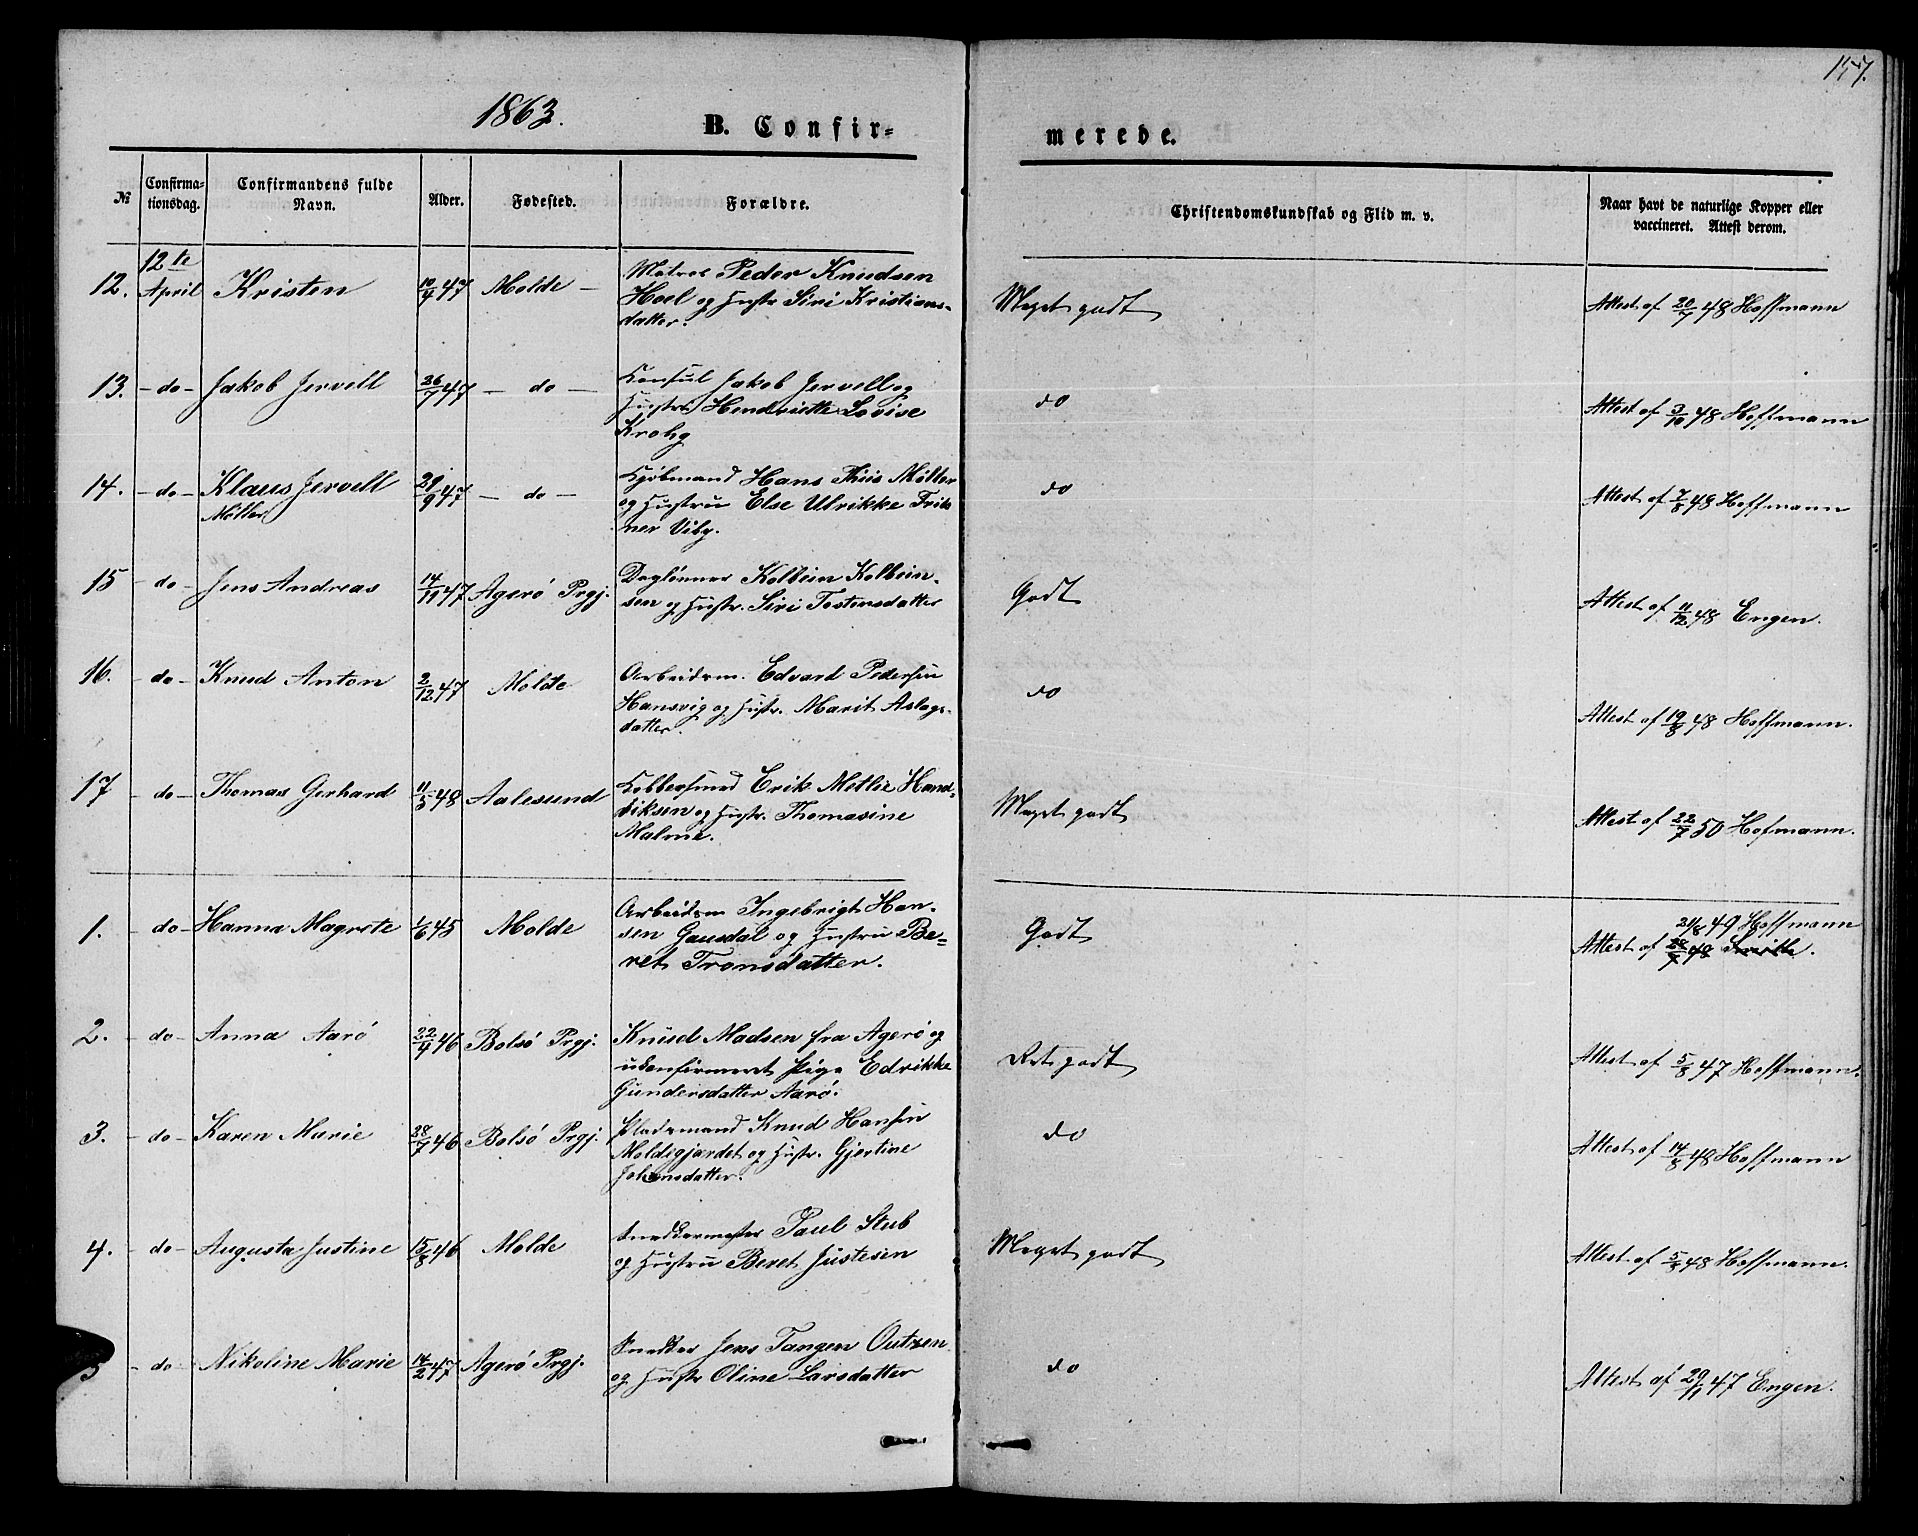 157.
1863.
B. Confir-
merede.
№
Confirma-
tionsdag.
Confirmandens fulde
Navn.
Alder.
Fødested.
Forældre.
Christendomskundskab og Flid m. v.
Naar havt de naturlige Kopper eller
vaccineret. Attest derom.
12. 12te April Kristen 10/4 47 Molde – Matros Peder Knudsen
Hoel og Hustr Siri Kristians-
datter. Meget godt Attest af 20/7 48 Hoffmann
13. – do – Jakob Jervell 26/7 47 – do – Konsul Jakob Jervell og
Hustr Hendriette Lovise
Krohg do Attest af 3/10 48 Hoffmann
14. – do – Klaus Jervell
Møller 29/9 47 – do – Kjøbmand Hans Thiis Møller
og Hustru Else Ulrikke Frid
ner Viby. do Attest af 7/8 48 Hoffmann
15 – do – Jens Andreas 14/11 47 Agerø Prgj. Daglønner Kolbein Kolbein-
sen og Hustr. Siri Tostensdatter Godt Attest af 11/12 48 Engen.
16. – do – Knud Anton 2/12 47 Molde Arbeidsm. Edvard Pedersen
Hansvig og Hustr. Marit Aslags-
datter. do Attest af 19/8 48 Hoffmann.
17 – do – Thomas Gerhard 11/3 48 Aalesund Kobbersmed Erik Metlie Hend-
riksen og Hustr. Thomasine
Malme. Meget godt Attest af 22/7 50 Hofmann.
1. – do – Hanna Magrete 1/6 45 Molde Arbeidsm Ingebrigt Han-
sen Gausdal og Hustru Be-
ret Tronsdatter. Godt 21/8 49 Hoffmann
Attest af 28/7 48
2. – do – Anna Aarø 22/4 46 Bolsø Prgj. Knud Madsen fra Agerø og
ukonfirmeret Pige Edrikke
Gundersdatter Aarø. Ret godt Attest af 5/8 47 Hoffmann.
3. – do – Karen Marie 28/7 46 Bolsø Prgj. Pladsmand Knud Hansen
Moldegjærdet og Hustr. Gjertine
Johansdatter. do Attest af 14/8 48 Hoffmann
4. – do – Augusta Justine 15/8 46 Molde Snedkermester Paul Stub
og Hustru Beret Justesen Meget godt Attest af 5/8 48 Hoffmann.
5 – do – Nikoline Marie 14/2 47 Agerø Prgj. Snedker Jens Tangen Outzen
og Hustr Oline Larsdatter do Attest af 29/11 47 Engen.